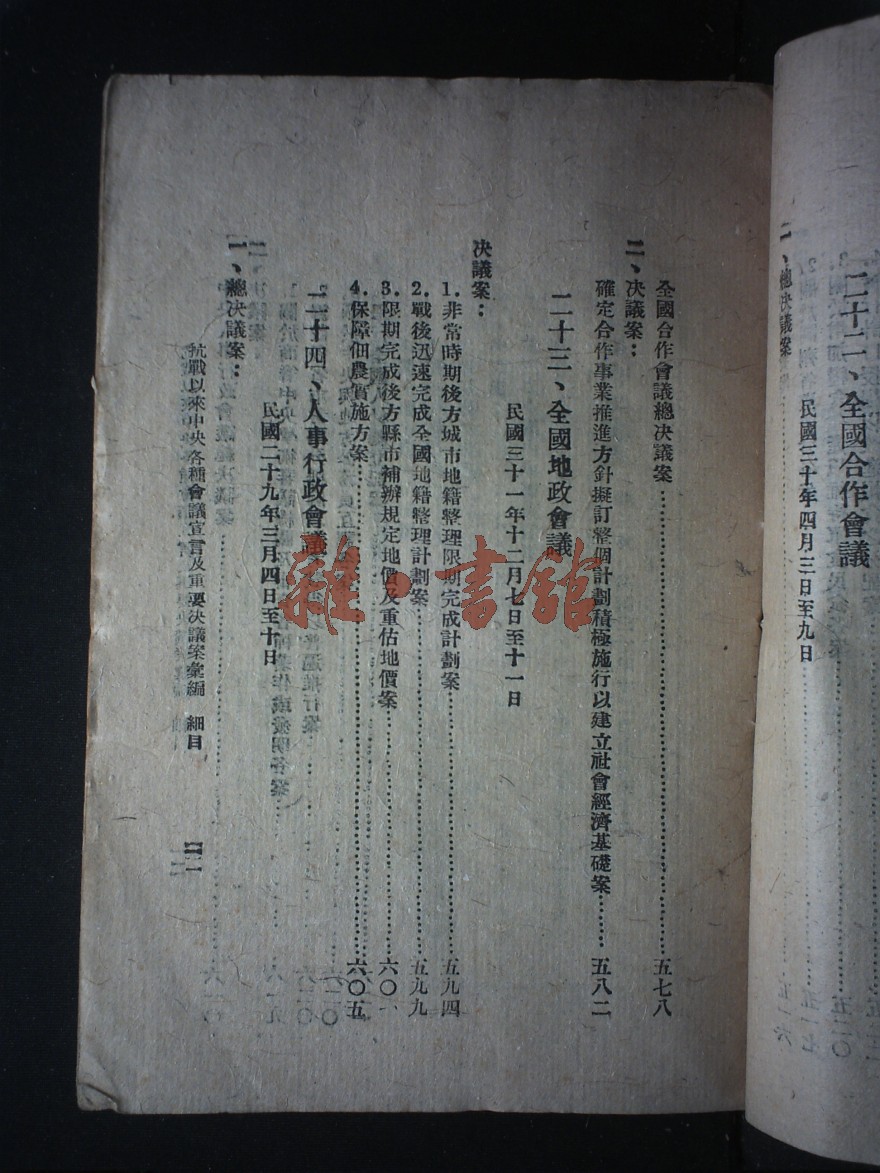 二十二、全國合作會議
民國三十年四月三日至九日
一、總決議案
全國合作會議總決議案……五七八
二、決議案：
確定合作事業推進方針擬訂整個計劃積極施行以建立社會經濟基礎案……五八二
二十三、全國地政會議
民國三十一年十二月七日至十一日
決議案：
1.非常時期後方城市地籍整理限期完成計劃案……五九四
2.戰後迅速完成全國地籍整理計劃案……五九九
3.限期完成後方縣市補辦規定地價及重估地價案……六〇一
4.保障佃農實施方案……六〇五
二十四、人事行政會議
民國二十九年三月四日至十日
一、總決議案：
抗戰以來中央各種會議宣言及重要決議案彙編 細目
雜·書館